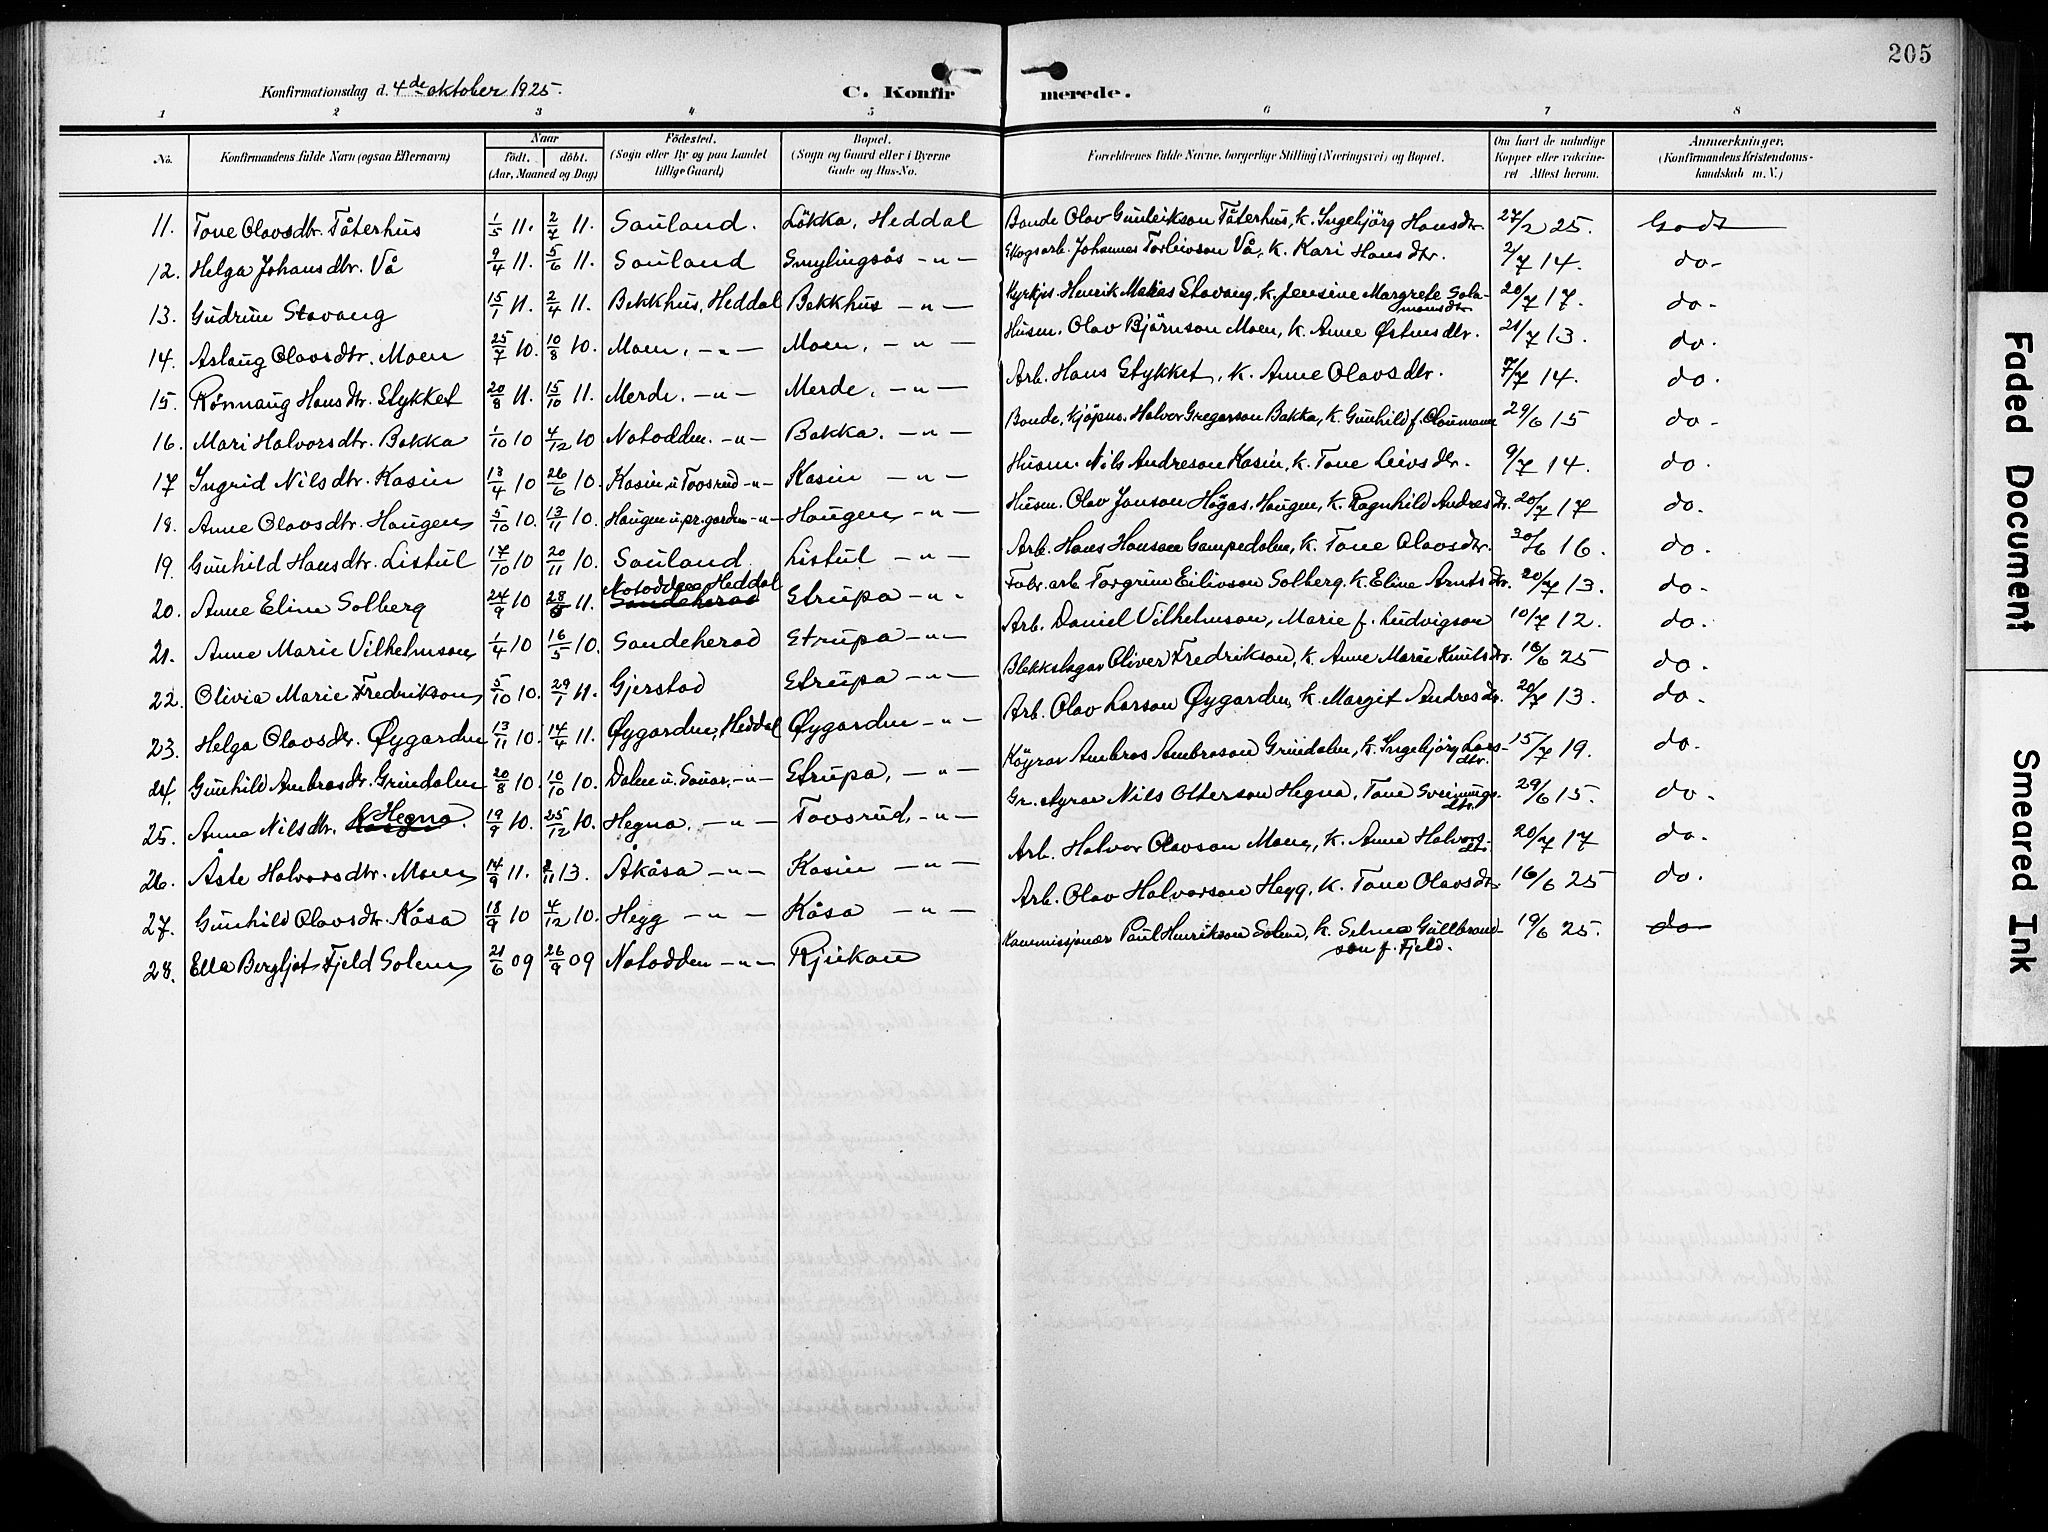 205
Konfirmationsdag d. 4de oktober 1925.
C. Konfirmerede.
1 2 3 4 5 6 7 8
No. | Konfirmandens fulde Navn (ogsaa Efternavn) | Naar födt. döbt. (Aar, Maaned og Dag) | Födested. (Sogn eller By og paa Landet tillige Gaard) | Bopæl. (Sogn og Gaard eller i Byerne Gade og Hus-No. | Forældrenes fulde Navne, borgerlige Stilling (Næringsvei) og Bopæl. | Om havt de naturlige Kopper eller vaccineret Attest herom. | Anmærkninger. (Konfirmandens Kristendomskundskab m. V.)
11. Tone Olavsdtr. Tåterhus 1/5 11. 2/7 11. Sauland. Løkka, Heddal Bonde Olav Gunleikson Tåterhus, k. Ingebjörg Hansdtr. 27/2 25. Godt
12. Helga Johansdtr. Vå 9/4 11. 5/6 11. Sauland Smylingsås -„- Skogsarb. Johannes Torleivson Vå, k. Kari Hansdtr. 2/7 14. do-
13. Gudrun Stavang 15/1 11. 2/4 11. Bekkhus, Heddal Bekkhus -„- Kyrkjes. Henrik Matias Stavang, k. Jensine Margrete Salamonsdtr. 20/7 17. do-
14. Aslaug Olavsdtr. Moen 25/7 10. 10/8 10. Moen, -„- Moen, -„- Husm. Olav Björnson Moen, k. Anne Østensdtr. 21/7 13. do.
15. Rönnaug Hansdtr. Stykket 20/8 11. 15/10 11. Merde. -„- Merde, -„- Arb. Hans Stykket, k. Anne Olavsdtr. 7/7 14. do.
16. Mari Halvorsdtr. Bakka 1/10 10 4/12 10 Notodden. -„- Bakka. -„- Bonde, kjöpm. Halvor Gregarson Bakka, k. Gunhild f. Claumann 29/6 15 do-
17 Ingrid Nilsdtr. Kasin 13/4 10 26/6 10. Kasin u. Tovsrud -„- Kasin -„- Husm. Nils Andreson Kasin, k. Tone Leivsdtr. 9/7 14. do.
18. Anne Olavsdtr. Haugen 5/10 10. 13/11 10. Haugen u. pr.garden -„- Haugen -„- Husm. Olav Janson Høgås, Haugen, k. Ragnhild Andresdtr. 20/7 17 do.
19. Gunhild Hansdtr. Listul 17/10 10 20/11 10. Sauland Listul -„- Arb. Hans Hanson Gampedalen, k. Tone Olavsdtr. 30/6 16. do.
20. Anne Eline Solberg 24/9 10 28/5 11. Notodden Heddal Sandeherad Strupa -„- Fabr.arb. Torgrim Eilivson Solberg, k. Eline Arntsdtr. 20/7 13. do-
21. Anne Marie Vilhelmson 1/4 10 16/5 10. Sandeherad Strupa -„- Arb. Daniel Vilhelmson, Marie f. Ludvigson 10/7 12. do.
22. Olivia Marie Fredrikson 5/10 10. 29/1 11. Gjerstad Strupa -„- Blekkslagar Oliver Fredrikson, k. Anne Marie Knutsdtr. 16/6 25 do.
23. Helga Olavsdtr. Øygarden 13/11 10. 14/4 11. Øygarden, Heddal Øygarden -„- Arb. Olav Larson Øygarden, k. Margit Andresdtr. 20/7 13. do-
24. Gunhild Ambrosdtr. Grindalen 20/8 10. 10/10 10. Dalen u. Sauar, -„- Strupa, -„- Köyrar Ambros Ambroson Grindalen, k. Ingebjörg Larsdtr. 15/7 19. do-
25. Anne Nilsdtr. Hegna. 19/9 10. 25/12 10. Hegna, -„- Tovsrud, -„- Gr. styrar Nils Otterson Hegna, Tone Sveinungsdtr. 29/6 15. do-
26. Åste Halvorsdtr. Moen 14/9 11. 2/11 13. Åkåsa -„- Kasin -„- Arb. Halvor Olavson Moen, k. Anne Halvorsdtr. 20/7 17 do.
27. Gunhild Olavsdtr. Kåsa 18/9 10 4/12 10. Hegg -„- Kåsa -„- Arb. Olav Halvorson Hegg, k. Tone Olavsdtr. 16/6 25 do.
28. Ella Bergljot Fjeld Solem 21/6 09 26/9 09 Notodden -„- Rjukan Kommissjonær Paul Henrikson Solem, k. Selma Gullbrandson f. Fjeld. 19/6 25. do
Faded Document
Smeared Ink